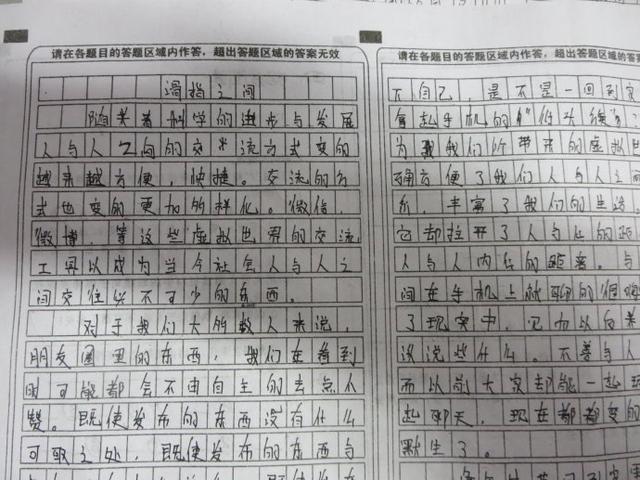 请在各题目的答题区域内作答，超出答题区域的答案无效
滑指之间
随关着科学的进步与发展
人与人之间的交乎流方式变的
越来越方便，快捷。交流的方
式也变的更加多样化。微信，
微博，等这些虚拟世界的交流
工具以成为当今社会人与人之
间交往必不可少的东西。
对于我们大多数人来说，
朋友圈里的东西，我们在看到
时可能都会不由自主的去点个
赞。既使发布的东西没有什么
可取之处，既使发布的东西与
请在各题目的答题区域内作答，超出答题区域的答案无效
不自己，是不是一回到家
拿起手机的“低头族”？
为我我们所带来的虚拟世
确方便了我们人与人之间
系，丰富了我们的生活。
它却拉开了人与人的距
人与人内心的距离。与
间在手机上就聊的很嗨
了现实中，见面以后差
没说些什么。不善与人
而以前大家却能一起玩
起聊天，现在都都变的
默生了。